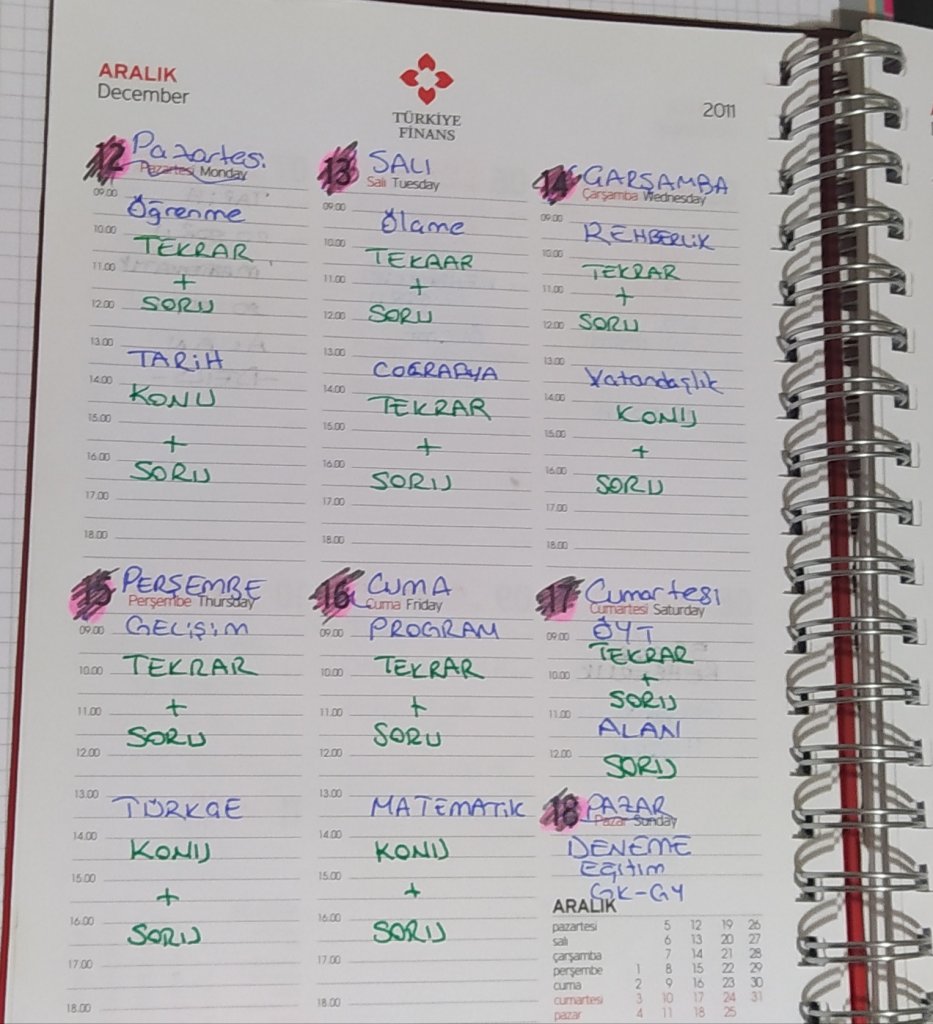 ARALIK
December
TÜRKİYE
FİNANS
2011
12 Pazartesi
Pazartesi Monday
09.00
Öğrenme
10.00
TEKRAR
11.00
+
12.00
SORU
13.00
TARİH
14.00
KONU
15.00
+
16.00
SORU
17.00
18.00
13 SALI
Salı Tuesday
09.00
Ölçme
10.00
TEKRAR
11.00
+
12.00
SORU
13.00
COĞRAFYA
14.00
TEKRAR
15.00
+
16.00
SORU
17.00
18.00
14 ÇARŞAMBA
Çarşamba Wednesday
09.00
REHBERLİK
10.00
TEKRAR
11.00
+
12.00
SORU
13.00
Vatandaşlık
14.00
KONU
15.00
+
16.00
SORU
17.00
18.00
15 PERŞEMBE
Perşembe Thursday
09.00
GELİŞİM
10.00
TEKRAR
11.00
+
SORU
12.00
13.00
TÜRKÇE
14.00
KONU
15.00
+
16.00
SORU
17.00
18.00
16 CUMA
Cuma Friday
09.00
PROGRAM
10.00
TEKRAR
11.00
+
SORU
12.00
13.00
MATEMATİK
14.00
KONU
15.00
+
16.00
SORU
17.00
18.00
17 Cumartesi
Cumartesi Saturday
09.00
ÖYT
TEKRAR
10.00
+
SORU
11.00
ALAN
12.00
SORU
18 PAZAR
Pazar Sunday
DENEME
Eğitim
GK-GY
ARALIK
pazartesi 5 12 19 26
salı 6 13 20 27
çarşamba 7 14 21 28
perşembe 1 8 15 22 29
cuma 2 9 16 23 30
cumartesi 3 10 17 24 31
pazar 4 11 18 25